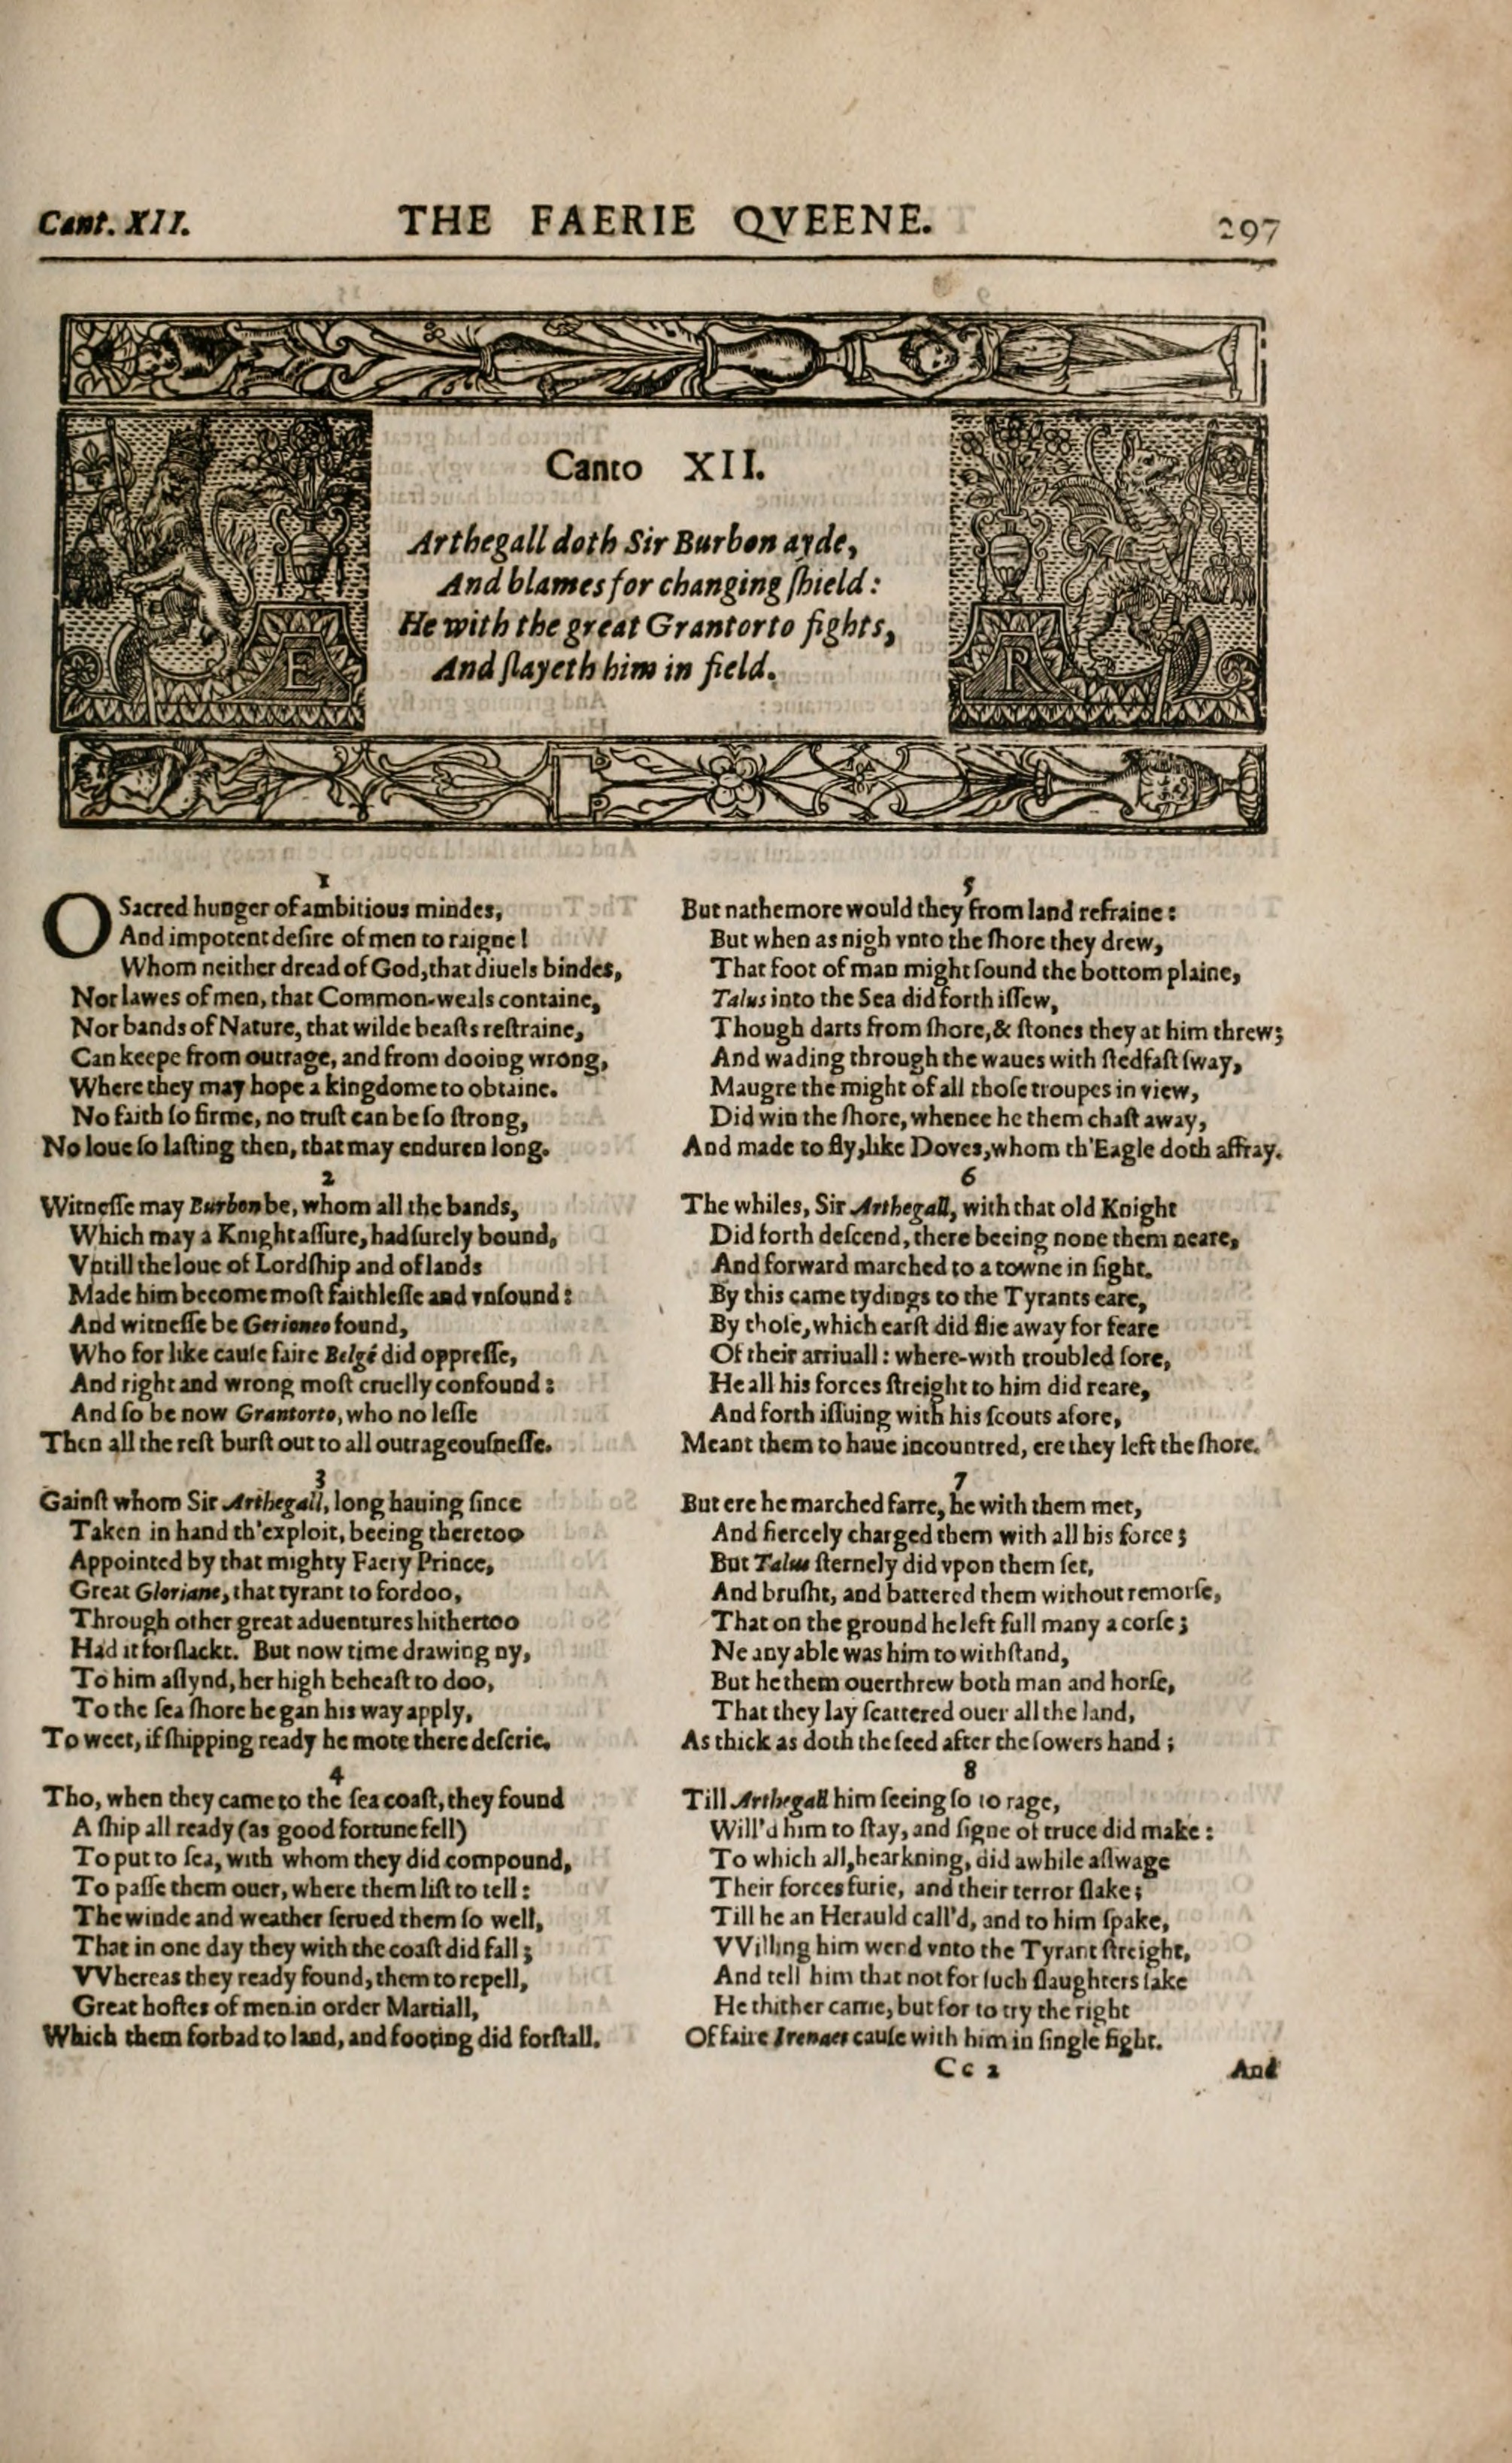 Cant. XII.
THE FAERIE QVEENE.
297
Canto XII.
Arthegall doth Sir Burbon ayde,
And blames for changing ſhield:
He with the great Grantorto fights,
And ſlayeth him in field.
E
R
1
O Sacred hunger of ambitious mindes,
And impotent deſire of men to raigne!
Whom neither dread of God, that diuels bindes,
Nor lawes of men, that Common-weals containe,
Nor bands of Nature, that wilde beaſts reſtraine,
Can keepe from outrage, and from dooing wrong,
Where they may hope a kingdome to obtaine.
No faith ſo firme, no truſt can be ſo ſtrong,
No loue ſo laſting then, that may enduren long.
2
Witneſſe may Burbon be, whom all the bands,
Which may a Knight aſſure, had ſurely bound,
Vntill the loue of Lordſhip and of lands
Made him become moſt faithleſſe and vnſound:
And witneſſe be Gerioneo found,
Who for like cauſe faire Belgé did oppreſſe,
And right and wrong moſt cruelly confound:
And ſo be now Grantorto, who no leſſe
Then all the reſt burſt out to all outrageouſneſſe.
3
Gainſt whom Sir Arthegall, long hauing ſince
Taken in hand th'exploit, beeing theretoo
Appointed by that mighty Faery Prince,
Great Gloriane, that tyrant to fordoo,
Through other great aduentures hithertoo
Had it forſlackt. But now time drawing ny,
To him aſſynd, her high beheaſt to doo,
To the ſea ſhore he gan his way apply,
To weet, if ſhipping ready he mote there deſcrie.
4
Tho, when they came to the ſea coaſt, they found
A ſhip all ready (as good fortune fell)
To put to ſea, with whom they did compound,
To paſſe them ouer, where them liſt to tell:
The winde and weather ſerued them ſo well,
That in one day they with the coaſt did fall;
VVhereas they ready found, them to repell,
Great hoſtes of men in order Martiall,
Which them forbad to land, and footing did forſtall.
5
But nathemore would they from land refraine:
But when as nigh vnto the ſhore they drew,
That foot of man might ſound the bottom plaine,
Talus into the Sea did forth iſſew,
Though darts from ſhore, & ſtones they at him threw;
And wading through the waues with ſtedfaſt ſway,
Maugre the might of all thoſe troupes in view,
Did win the ſhore, whence he them chaſt away,
And made to fly, like Doves, whom th'Eagle doth affray.
6
The whiles, Sir Arthegall, with that old Knight
Did forth deſcend, there beeing none them neare,
And forward marched to a towne in ſight.
By this came tydings to the Tyrants eare,
By thoſe, which earſt did flie away for feare
Of their arriuall: where-with troubled ſore,
He all his forces ſtreight to him did reare,
And forth iſſuing with his ſcouts afore,
Meant them to haue incountred, ere they left the ſhore.
7
But ere he marched farre, he with them met,
And fiercely charged them with all his force;
But Talus ſternely did vpon them ſet,
And bruſht, and battered them without remorſe,
That on the ground he left full many a corſe;
Ne any able was him to withſtand,
But he them ouerthrew both man and horſe,
That they lay ſcattered ouer all the land,
As thick as doth the ſeed after the ſowers hand;
8
Till Arthegall him ſeeing ſo to rage,
Will'd him to ſtay, and ſigne of truce did make:
To which all, hearkning, did awhile aſſwage
Their forces furie, and their terror ſlake;
Till he an Herauld call'd, and to him ſpake,
VVilling him wend vnto the Tyrant ſtreight,
And tell him that not for ſuch ſlaughters ſake
He thither came, but for to try the right
Of faire Irenaes cauſe with him in ſingle fight.
Cc 2
And